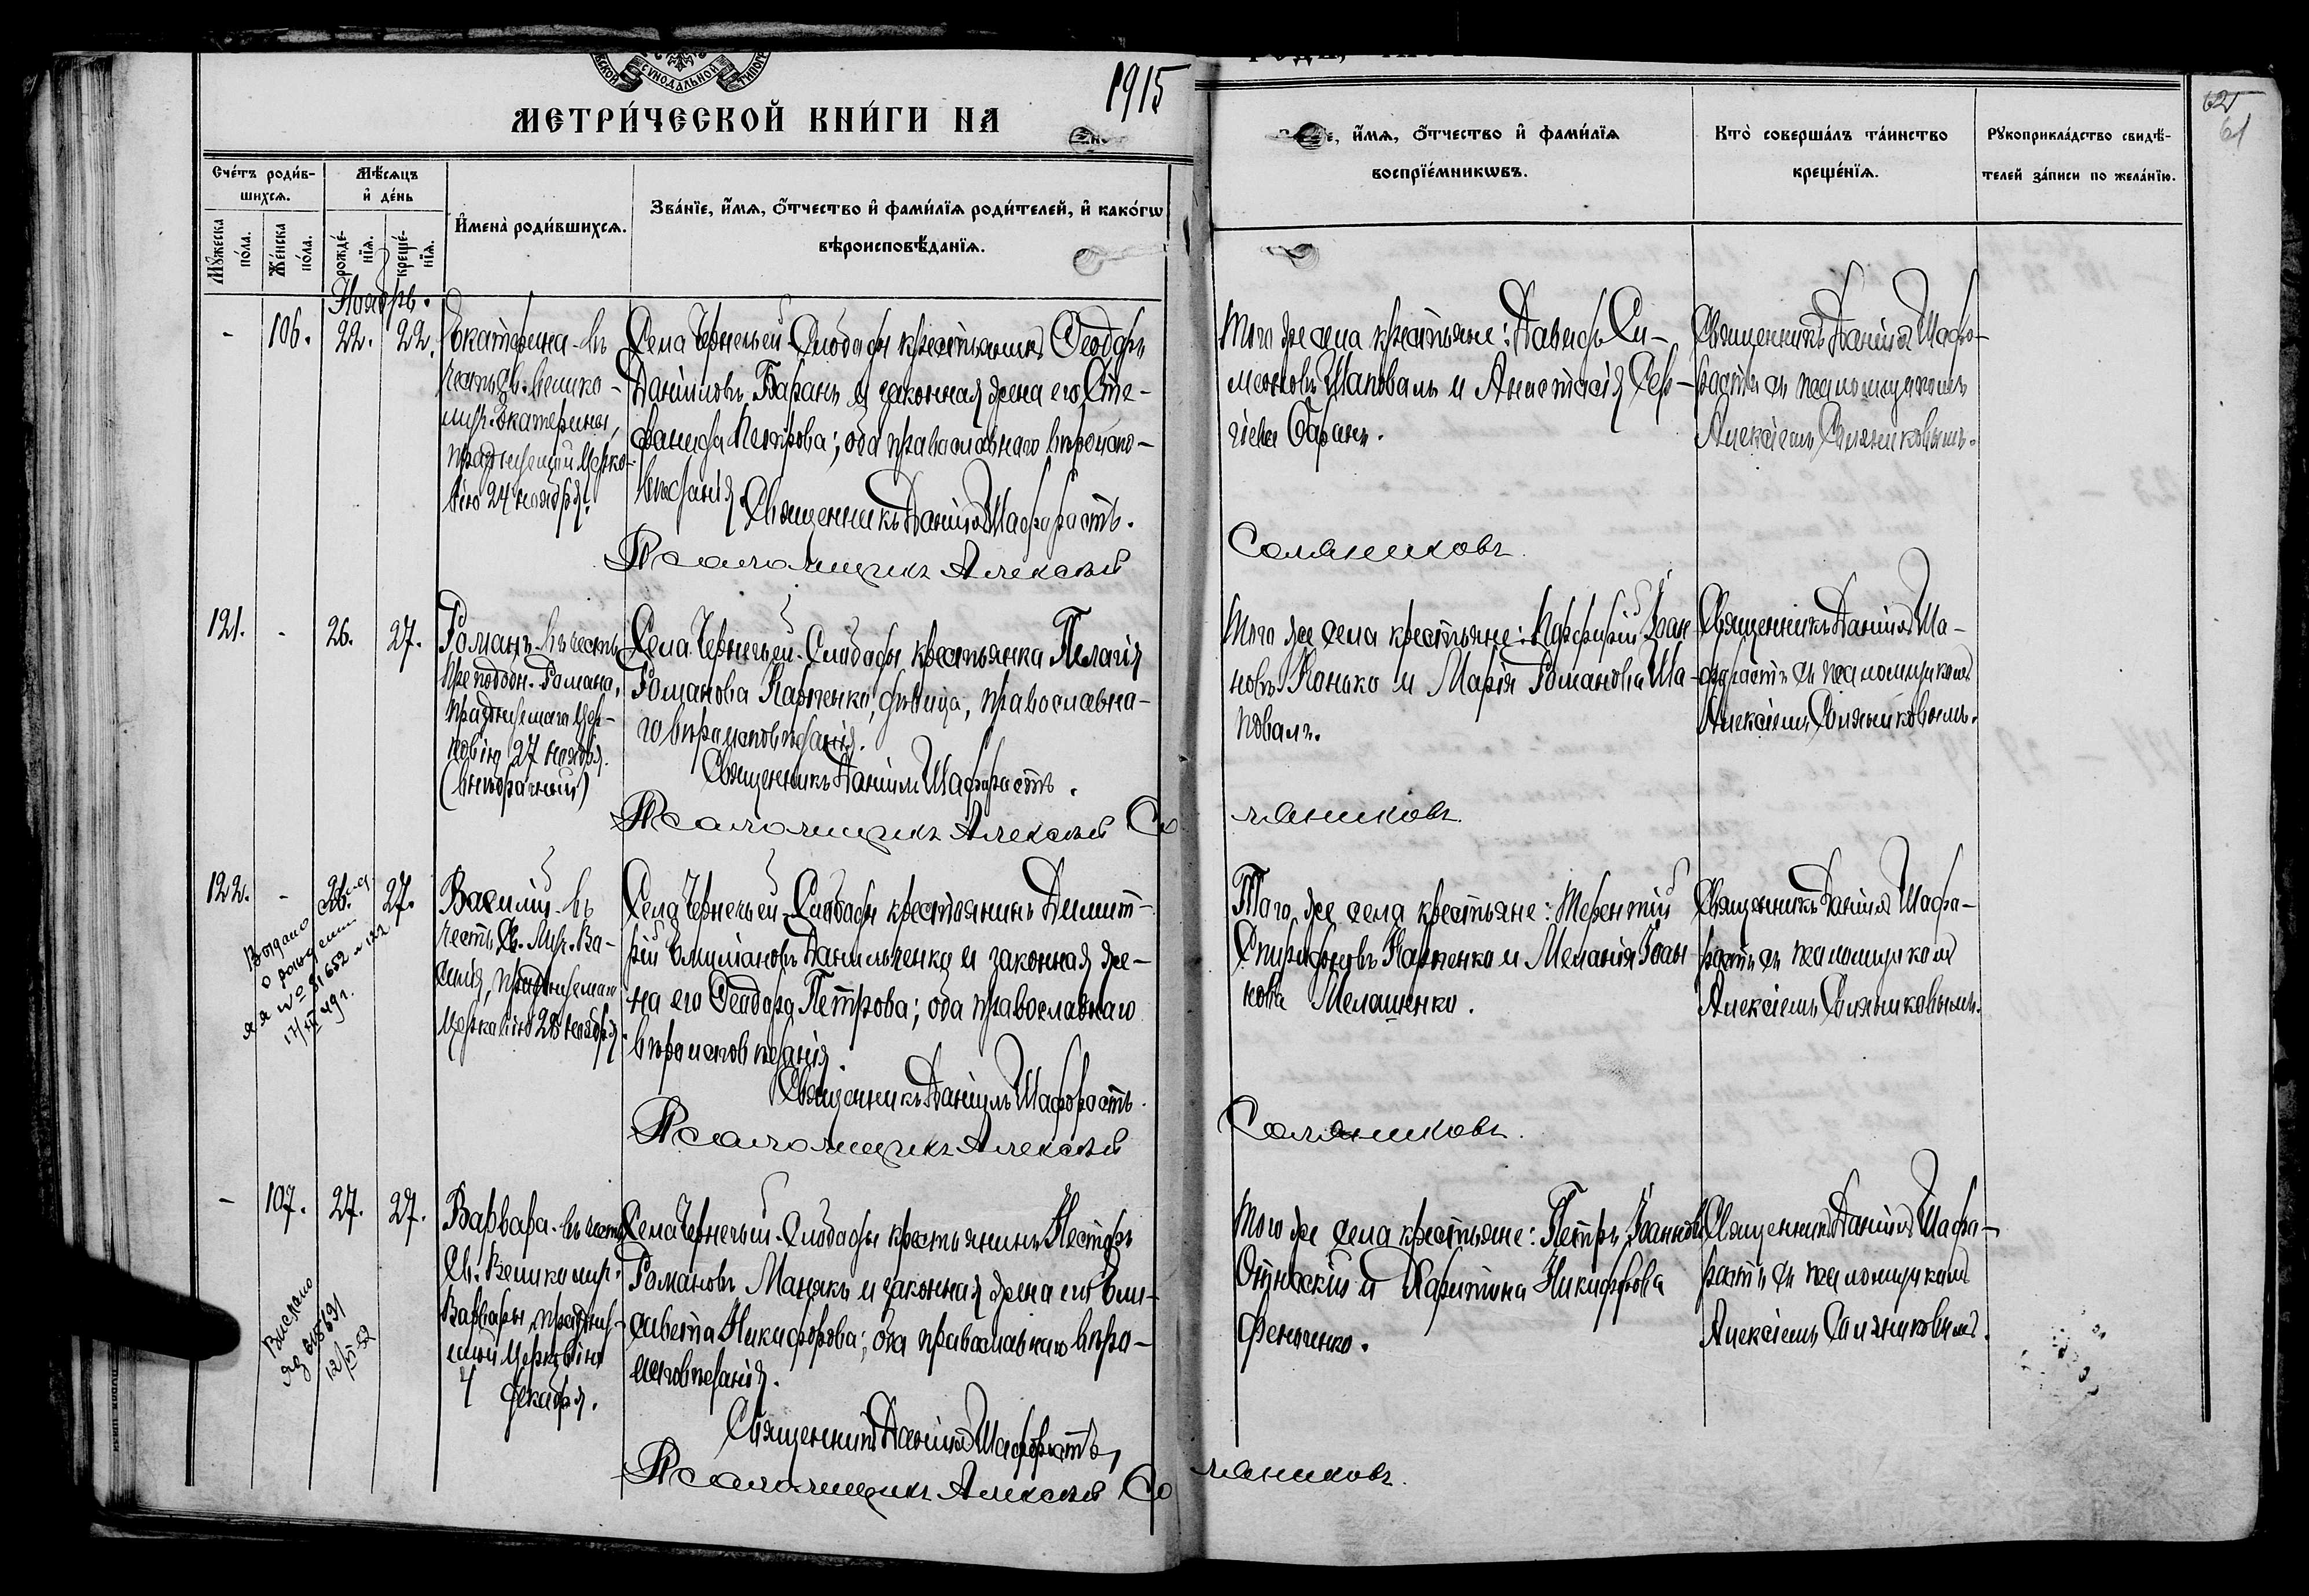 СУНОДАЛЬНОЙ
1915
МЕТРИ́ЧЕСКОЙ КНИ́ГИ НА
62
61
Сче́тъ роди́в-
шихсѧ.
Мѣ́сѧцъ
и҆ де́нь
И҆мена̀ роди́вшихсѧ.
Зва́нїе, и҆́мѧ, ѻ҆́тчество и҆ фами́лїѧ роди́телей, и҆ како́гѡ
вѣроисповѣ́данїѧ.
Мꙋ́жеска
по́ла.
Же́нска
по́ла.
рожде́-
нїѧ.
креще́-
нїѧ.
е, и҆́мѧ, ѻ҆́тчество и҆ фами́лїѧ
воспрїе́мникѡвъ.
Кто̀ соверша́лъ та́инство
креще́нїѧ.
Рꙋкоприкла́дство свидѣ́-
телей за́писи по жела́нїю.
Ноябрь.
-
106.
22.
22.
Екатерина - въ
честь Св. велико-
муч. Екатерины,
празднуемой Церко-
вію 24 ноября.
Села Чернечьей-Слободы крестьянинъ Ѳеодоръ
Даніиловъ Баранъ и законная жена его Сте-
фанида Петрова; оба православнаго вѣроиспо-
вѣданія.
Священникъ Даніилъ Шафорастъ.
Псаломщикъ Алексѣй
Того же села крестьяне: Давидъ Си-
меоновъ Шаповалъ и Анастасія Сер-
гіева Баранъ.
Соляниковъ.
Священникъ Даніилъ Шафо-
растъ съ псаломщикомъ
Алексіемъ Соляниковымъ.
121.
-
26.
27.
Романъ - въ честь
Преподобн. Романа,
празднуемаго Цер-
ковію 27 ноября.
(внѣбрачный)
Села Чернечьей-Слободы крестьянка Пелагія
Романова Карпенко, дѣвица, православна-
го вѣроисповѣданія.
Священникъ Даніилъ Шафорастъ.
Псаломщикъ Алексѣй Со
Того же села крестьяне: Порфирій Іоан
новъ Конько и Марія Романова Ша-
повалъ.
ляниковъ.
Священникъ Даніилъ Ша-
форастъ съ псаломщикомъ
Алексіемъ Соляниковымъ.
122.
-
26.
27.
Выдано
о рождении
№ 81652
Василій - въ
честь Св. Муч. Ва-
силія, празднуемаго
Церковію 28 ноября.
Села Чернечьей-Слободы крестьянинъ Димит-
рій Емиліановъ Данильченко и законная же-
на его Ѳеодора Петрова; оба православнаго
вѣроисповѣданія.
Священникъ Даніилъ Шафорастъ.
Псаломщикъ Алексѣй
Того же села крестьяне: Терентій
Спиридоновъ Карпенко и Меланія Іоан
нова Мелашенко.
Соляниковъ.
Священникъ Даніилъ Шафо-
растъ съ псаломщикомъ
Алексіемъ Соляниковымъ.
-
107.
27.
27.
Варвара - въ честь
Св. Великомуч.
Варвары, праздну-
емой Церковію
4 декабря.
Села Чернечьей-Слободы крестьянинъ Несторъ
Романовъ Манякъ и законная жена его Ели-
савета Никифорова; оба православнаго вѣро-
исповѣданія.
Священникъ Даніилъ Шафорастъ,
Псаломщикъ Алексѣй Со
Того же села крестьяне: Петръ Іоанновъ
и Харитина Никифорова
Феньченко.
ляниковъ.
Священникъ Даніилъ Шафо-
растъ съ псаломщикомъ
Алексіемъ Соляниковымъ.